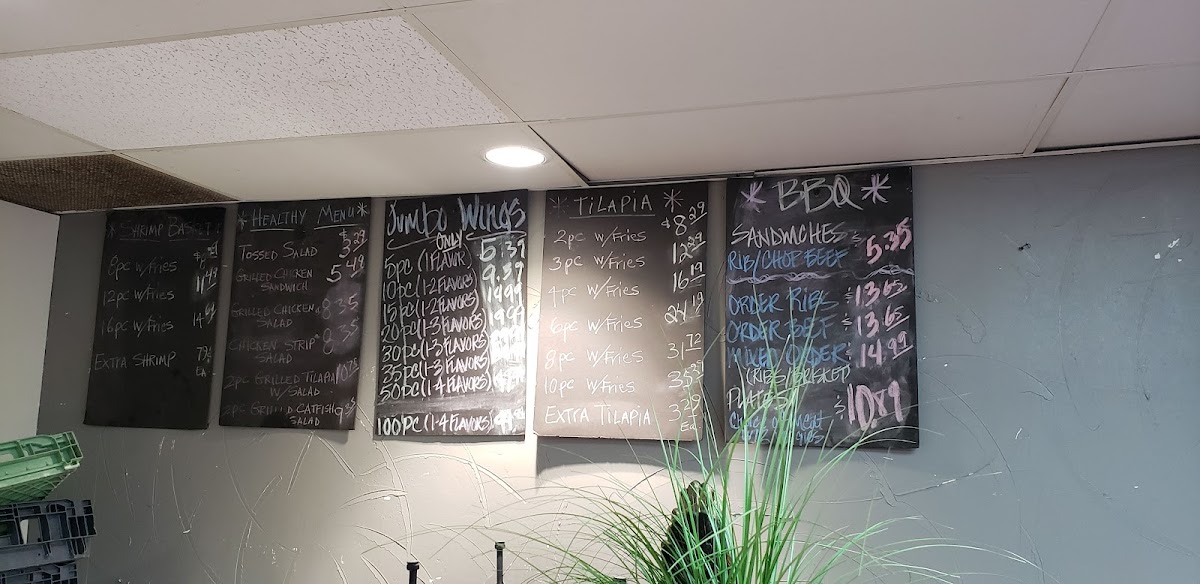 * SHRIMP BASKET
8pc w/Fries
12pc w/Fries 11.49
16pc w/Fries 14.69
EXTRA SHRIMP 79¢ EA
* HEALTHY MENU *
TOSSED SALAD $3.29
GRILLED CHICKEN 5.49
SANDWICH
GRILLED CHICKEN 8.35
SALAD
CHICKEN STRIP 8.35
SALAD
2pc GRILLED TILAPIA 10.75
W/SALAD
2pc GRILLED CATFISH
SALAD
Jumbo Wings
ONLY
5pc (1 FLAVOR) 5.39
10pc (1-2 FLAVORS) 9.39
15pc (1-2 FLAVORS)
20pc (1-3 FLAVORS)
30pc (1-3 FLAVORS)
35pc (1-3 FLAVORS)
50pc (1-4 FLAVORS)
100pc (1-4 FLAVORS)
* TILAPIA *
2pc w/Fries $8.29
3pc w/Fries 12.29
4pc w/Fries 16.19
6pc w/Fries 24.19
8pc w/Fries 31.72
10pc w/Fries 35.35
EXTRA TILAPIA 3.29 Ea
* BBQ *
SANDWICHES $5.35
RIB/CHOP BEEF
ORDER RIBS $13.65
ORDER BEEF $13.65
MIXED ORDER $14.99
(RIBS/BRISKET)
PLATES $10.89